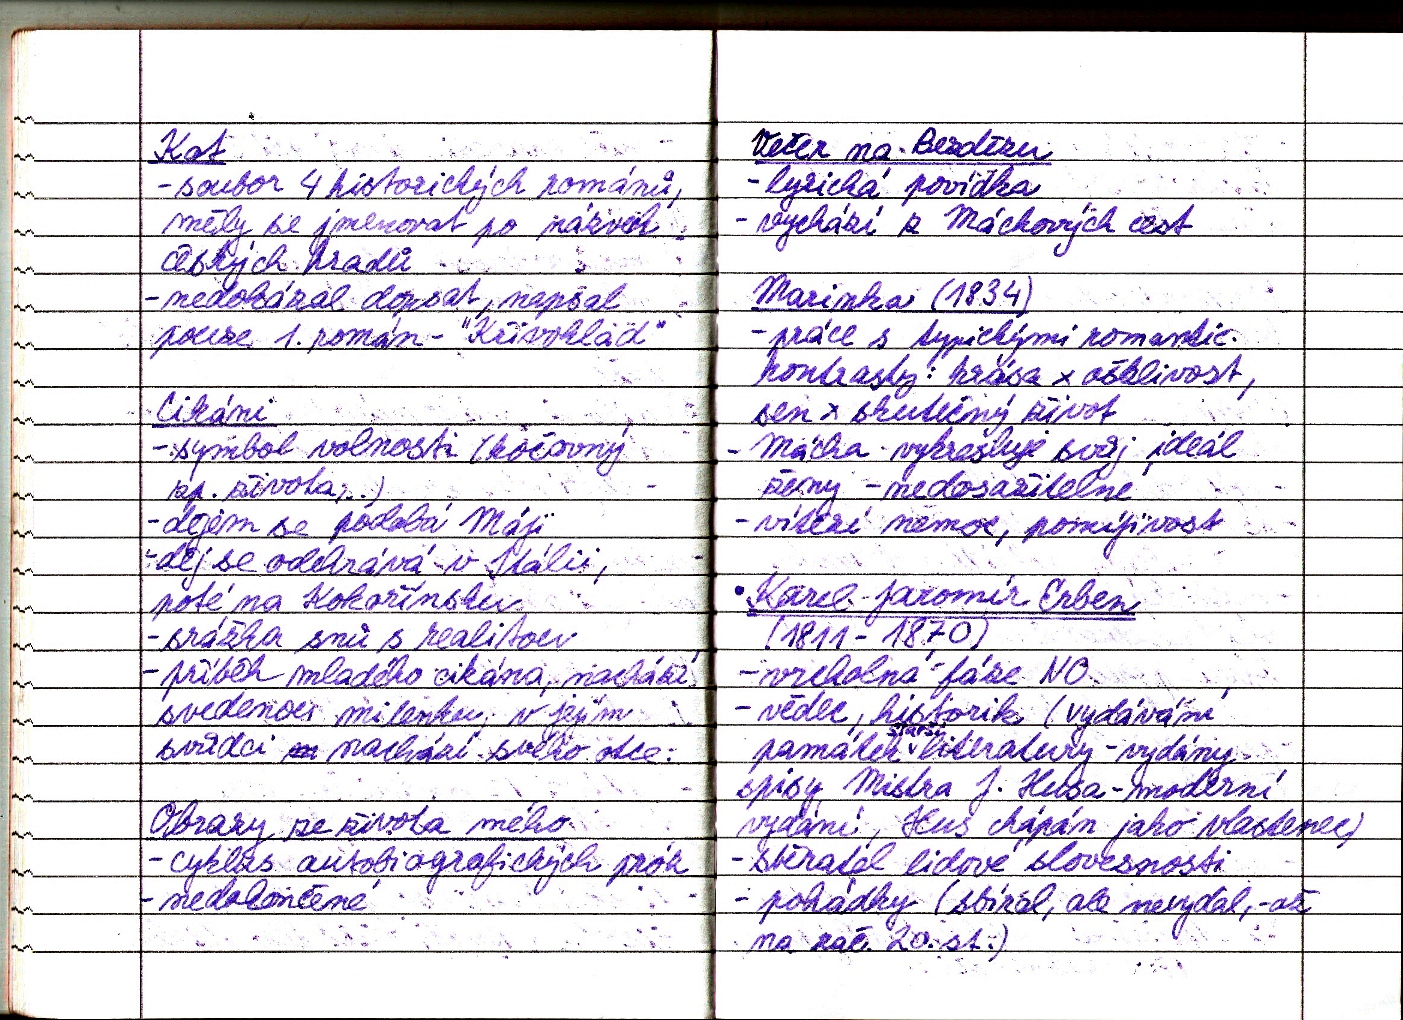 Kat
- soubor 4 historických románů,
měly se jmenovat po názvech
českých hradů
- nedokázal dopsat, napsal
pouze 1. román - "Křivoklád"
Cikáni
- symbol volnosti (kočovný
zp. života,..)
- dějem se podobá Máji
- děj se odehrává v Itálii,
poté na Kokořínsku
- srážka snů s realitou
- příběh mladého cikána, nachází
svedenou milenku, v jejím
svůdci nachází svého otce.
Obrazy ze života mého
- cyklus autobiografických próz
- nedokončené
Večer na Bezdězu
- lyrická povídka
- vychází z Máchových cest
Marinka (1834)
- práce s typickými romantic.
kontrasty: krása x ošklivost,
sen x skutečný život
- Mácha vykresluje svůj ideál
ženy - nedosažitelné
- vítězí nemoc, pomíjivost
• Karel Jaromír Erben
(1811 - 1870)
- vrcholná fáze NO
- vědec, historik (vydávání
památek starší literatury - vydány
spisy Mistra J. Husa - moderní
vydání, Hus chápán jako vlastenec)
- sběratel lidové slovesnosti
- pohádky (sbíral, ale nevydal, - až
na zač. 20. st.)